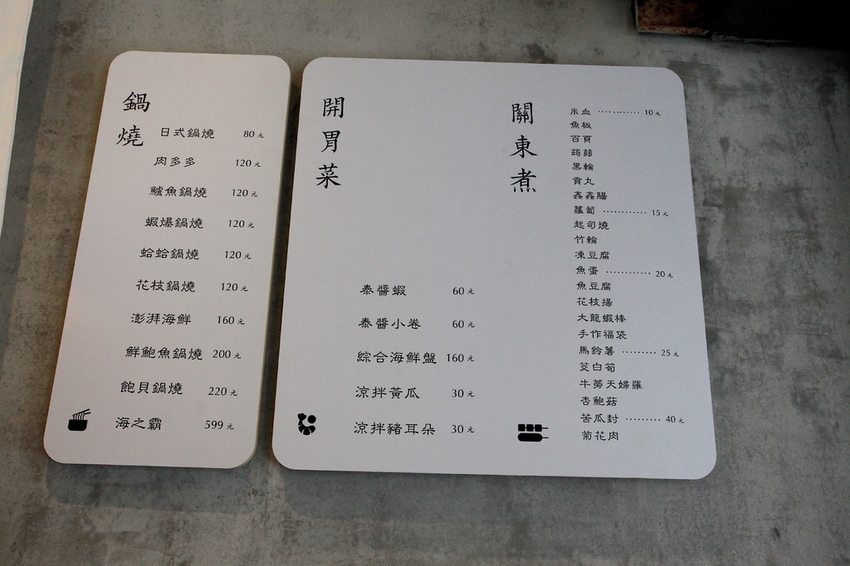 鍋燒
日式鍋燒 80元
肉多多 120元
鱸魚鍋燒 120元
蝦爆鍋燒 120元
蛤蛤鍋燒 120元
花枝鍋燒 120元
澎湃海鮮 160元
鮮鮑魚鍋燒 200元
飽貝鍋燒 220元
海之霸 599元
開胃菜
泰醬蝦 60元
泰醬小卷 60元
綜合海鮮盤 160元
涼拌黃瓜 30元
涼拌豬耳朵 30元
關東煮
米血 ............ 10元
魚板
百頁
蒟蒻
黑輪
貢丸
鑫鑫腸
蘿蔔 ............ 15元
起司燒
竹輪
凍豆腐
魚蛋 ............ 20元
魚豆腐
花枝揚
大龍蝦棒
手作福袋
馬鈴薯 ......... 25元
茭白筍
牛蒡天婦羅
杏鮑菇
苦瓜封 ......... 40元
菊花肉